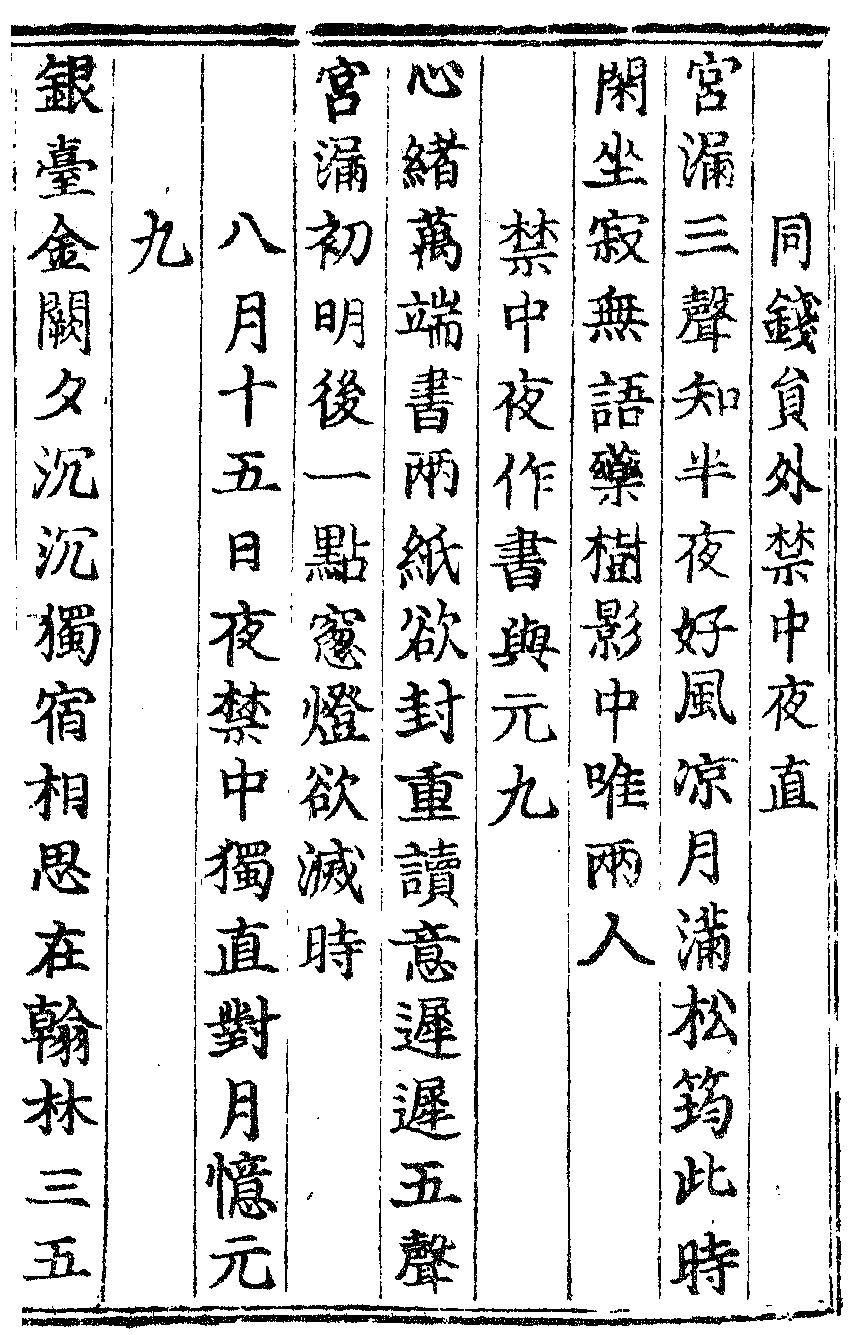 同錢貟外禁中夜直
宮漏三聲知半夜好風凉月滿松筠此時
閑坐寂無語藥樹影中唯兩人
禁中夜作書與元九
心緖萬端書兩紙欲封重讀意遲遲五聲
宮漏初明後一點窻燈欲滅時
八月十五日夜禁中獨直對月憶元
九
銀臺金闕夕沉沉獨宿相思在翰林三五